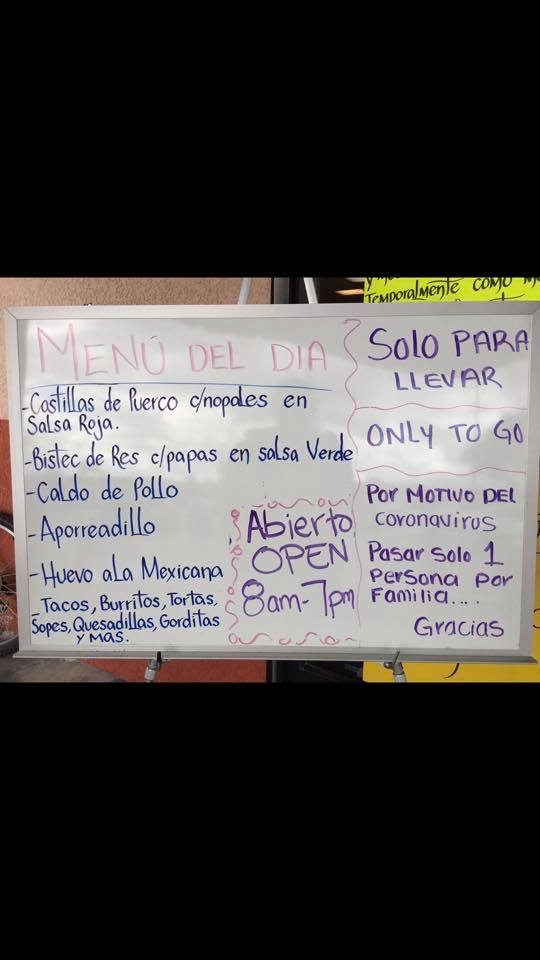 MENÚ DEL DIA
-Costillas de Puerco c/nopales en
Salsa Roja.
-Bistec de Res c/papas en salsa Verde
-Caldo de Pollo
-Aporreadillo
-Huevo aLa Mexicana
Tacos, Burritos, Tortas,
Sopes, Quesadillas, Gorditas
y MAS.
Abierto
OPEN
8am-7pm
SOLO PARA
LLEVAR
ONLY TO GO
POR MOTIVO DEL
coronavirus
Pasar Solo 1
Persona por
Familia....
Gracias
Temporalmente como